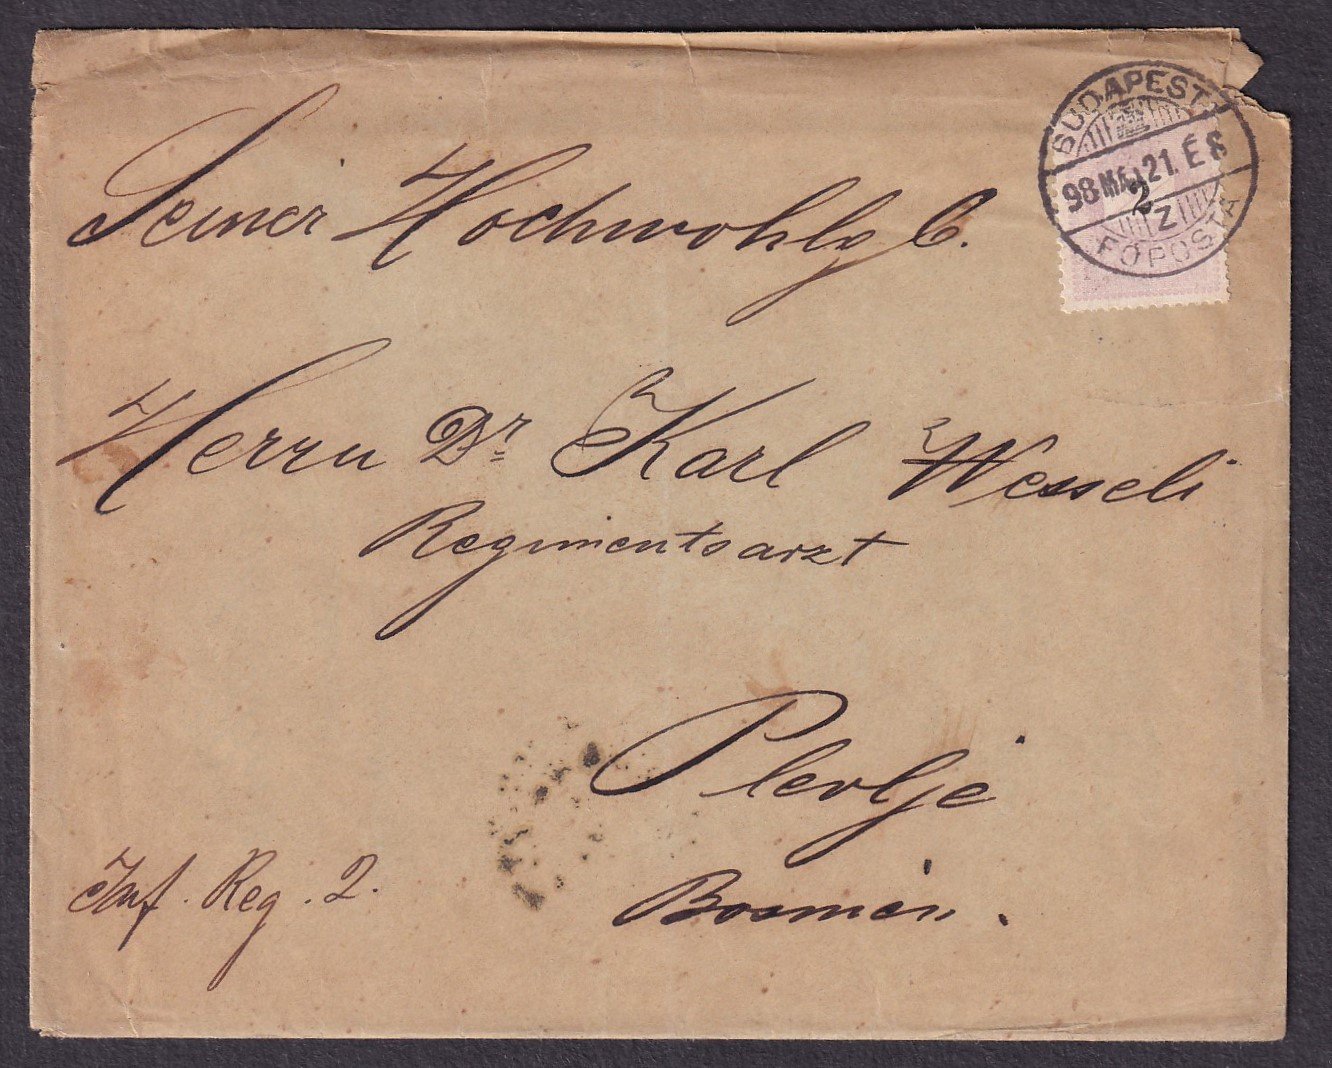 BUDAPEST
98 MÁJ 21. É 8
2
Z
FŐPOSTA
Seiner Hochwohlg b.
Herrn Dr Karl Wesseli
Regimentsarzt
Plevlje
Inf. Reg. 2.
Bosnien.